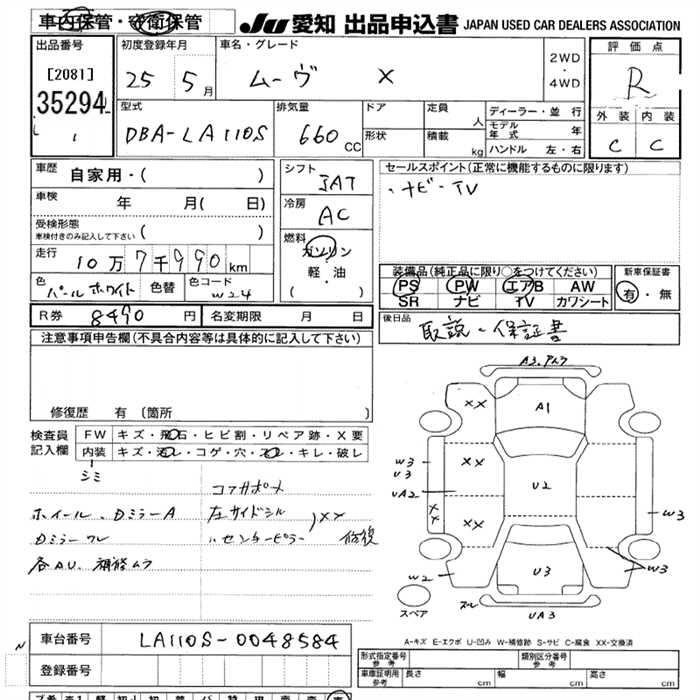 車内保管・守衛保管
JU 愛知 出品申込書 JAPAN USED CAR DEALERS ASSOCIATION
出品番号
[2081]
35294
初度登録年月
25 5月
車名・グレード
ムーヴ X
2WD
・
4WD
評価点
R
外装 内装
C C
型式
DBA-LA110S
排気量
660 CC
ドア
形状
定員 人
積載 kg
ディーラー・並行
モデル年式 年
ハンドル 左・右
車歴
自家用・( )
車検
年 月( 日)
受検形態
車検付きのみ記入して下さい ( )
走行
10万7千990km
色
パールホワイト
色替
色コード
W24
シフト
IAT
冷房
AC
燃料
ガソリン
軽・油
( )
セールスポイント(正常に機能するものに限ります)
ナビ・TV
装備品(純正品に限り○をつけてください)
PS PW エアB AW
SR ナビ TV カワシート
新車保証書
有・無
R券 8490円
名変期限 月 日
後日品
取説・保証書
注意事項申告欄(不具合内容等は具体的に記入して下さい)
修復歴 有(箇所 )
検査員
記入欄
FW キズ・飛石・ヒビ割・リペア跡・X要
内装 キズ・汚レ・コゲ・穴・スレ・キレ・破レ
シミ
コアサポート
ホイール、DミラーA
左サイドシル
Dミラーワレ
〃センターピラー
XX
修復
各AU、補修ムラ
A3.アルワ
XX A1
XX U2
XX
XX
W3
U3
UA2
W3
W2
U3
W3
スペア
スレ
UA3
A-キズ E-エクボ U-凹み W-補修跡 S-サビ C-腐食 XX-交換済
車台番号 LA110S-0048584
登録番号
形式指定番号
参考
類別区分番号
参考
車庫証明用
参考
長さ cm 幅 cm 高さ cm